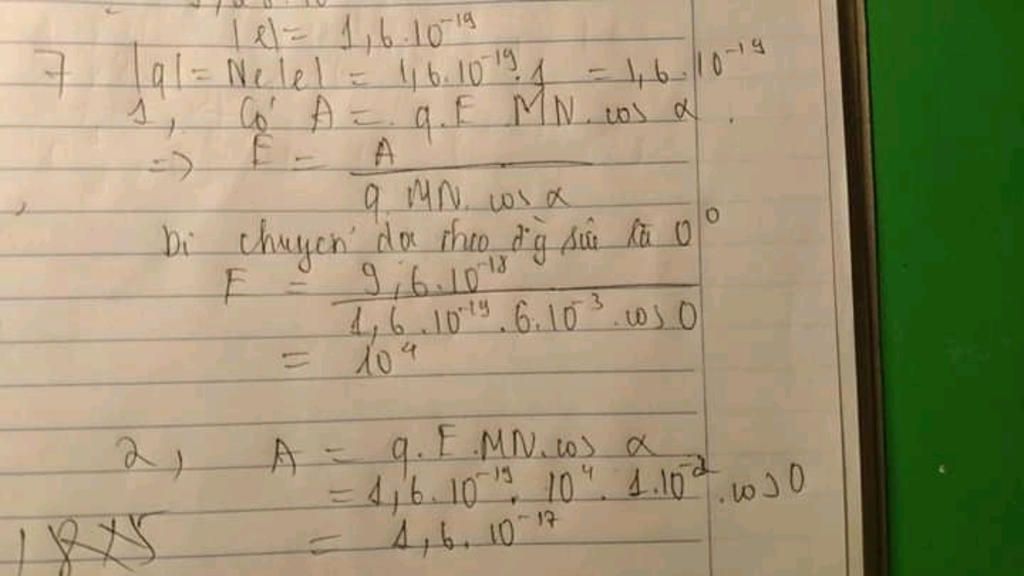 |e| = 1,6.10⁻¹⁹
7 |q| = Ne|e| = 1,6.10⁻¹⁹.1 = 1,6.10⁻¹⁹
1, Có A = q.E MN.cos α.
=> E = A / q.MN.cos α
Di chuyển dọc theo đg sức là 0°
E = 9,6.10⁻¹⁸ / 1,6.10⁻¹⁹.6.10⁻³.cos 0
= 10⁴
2, A = q.E.MN.cos α
= 1,6.10⁻¹⁹. 10⁴. 1.10⁻².cos 0
= 1,6.10⁻¹⁷